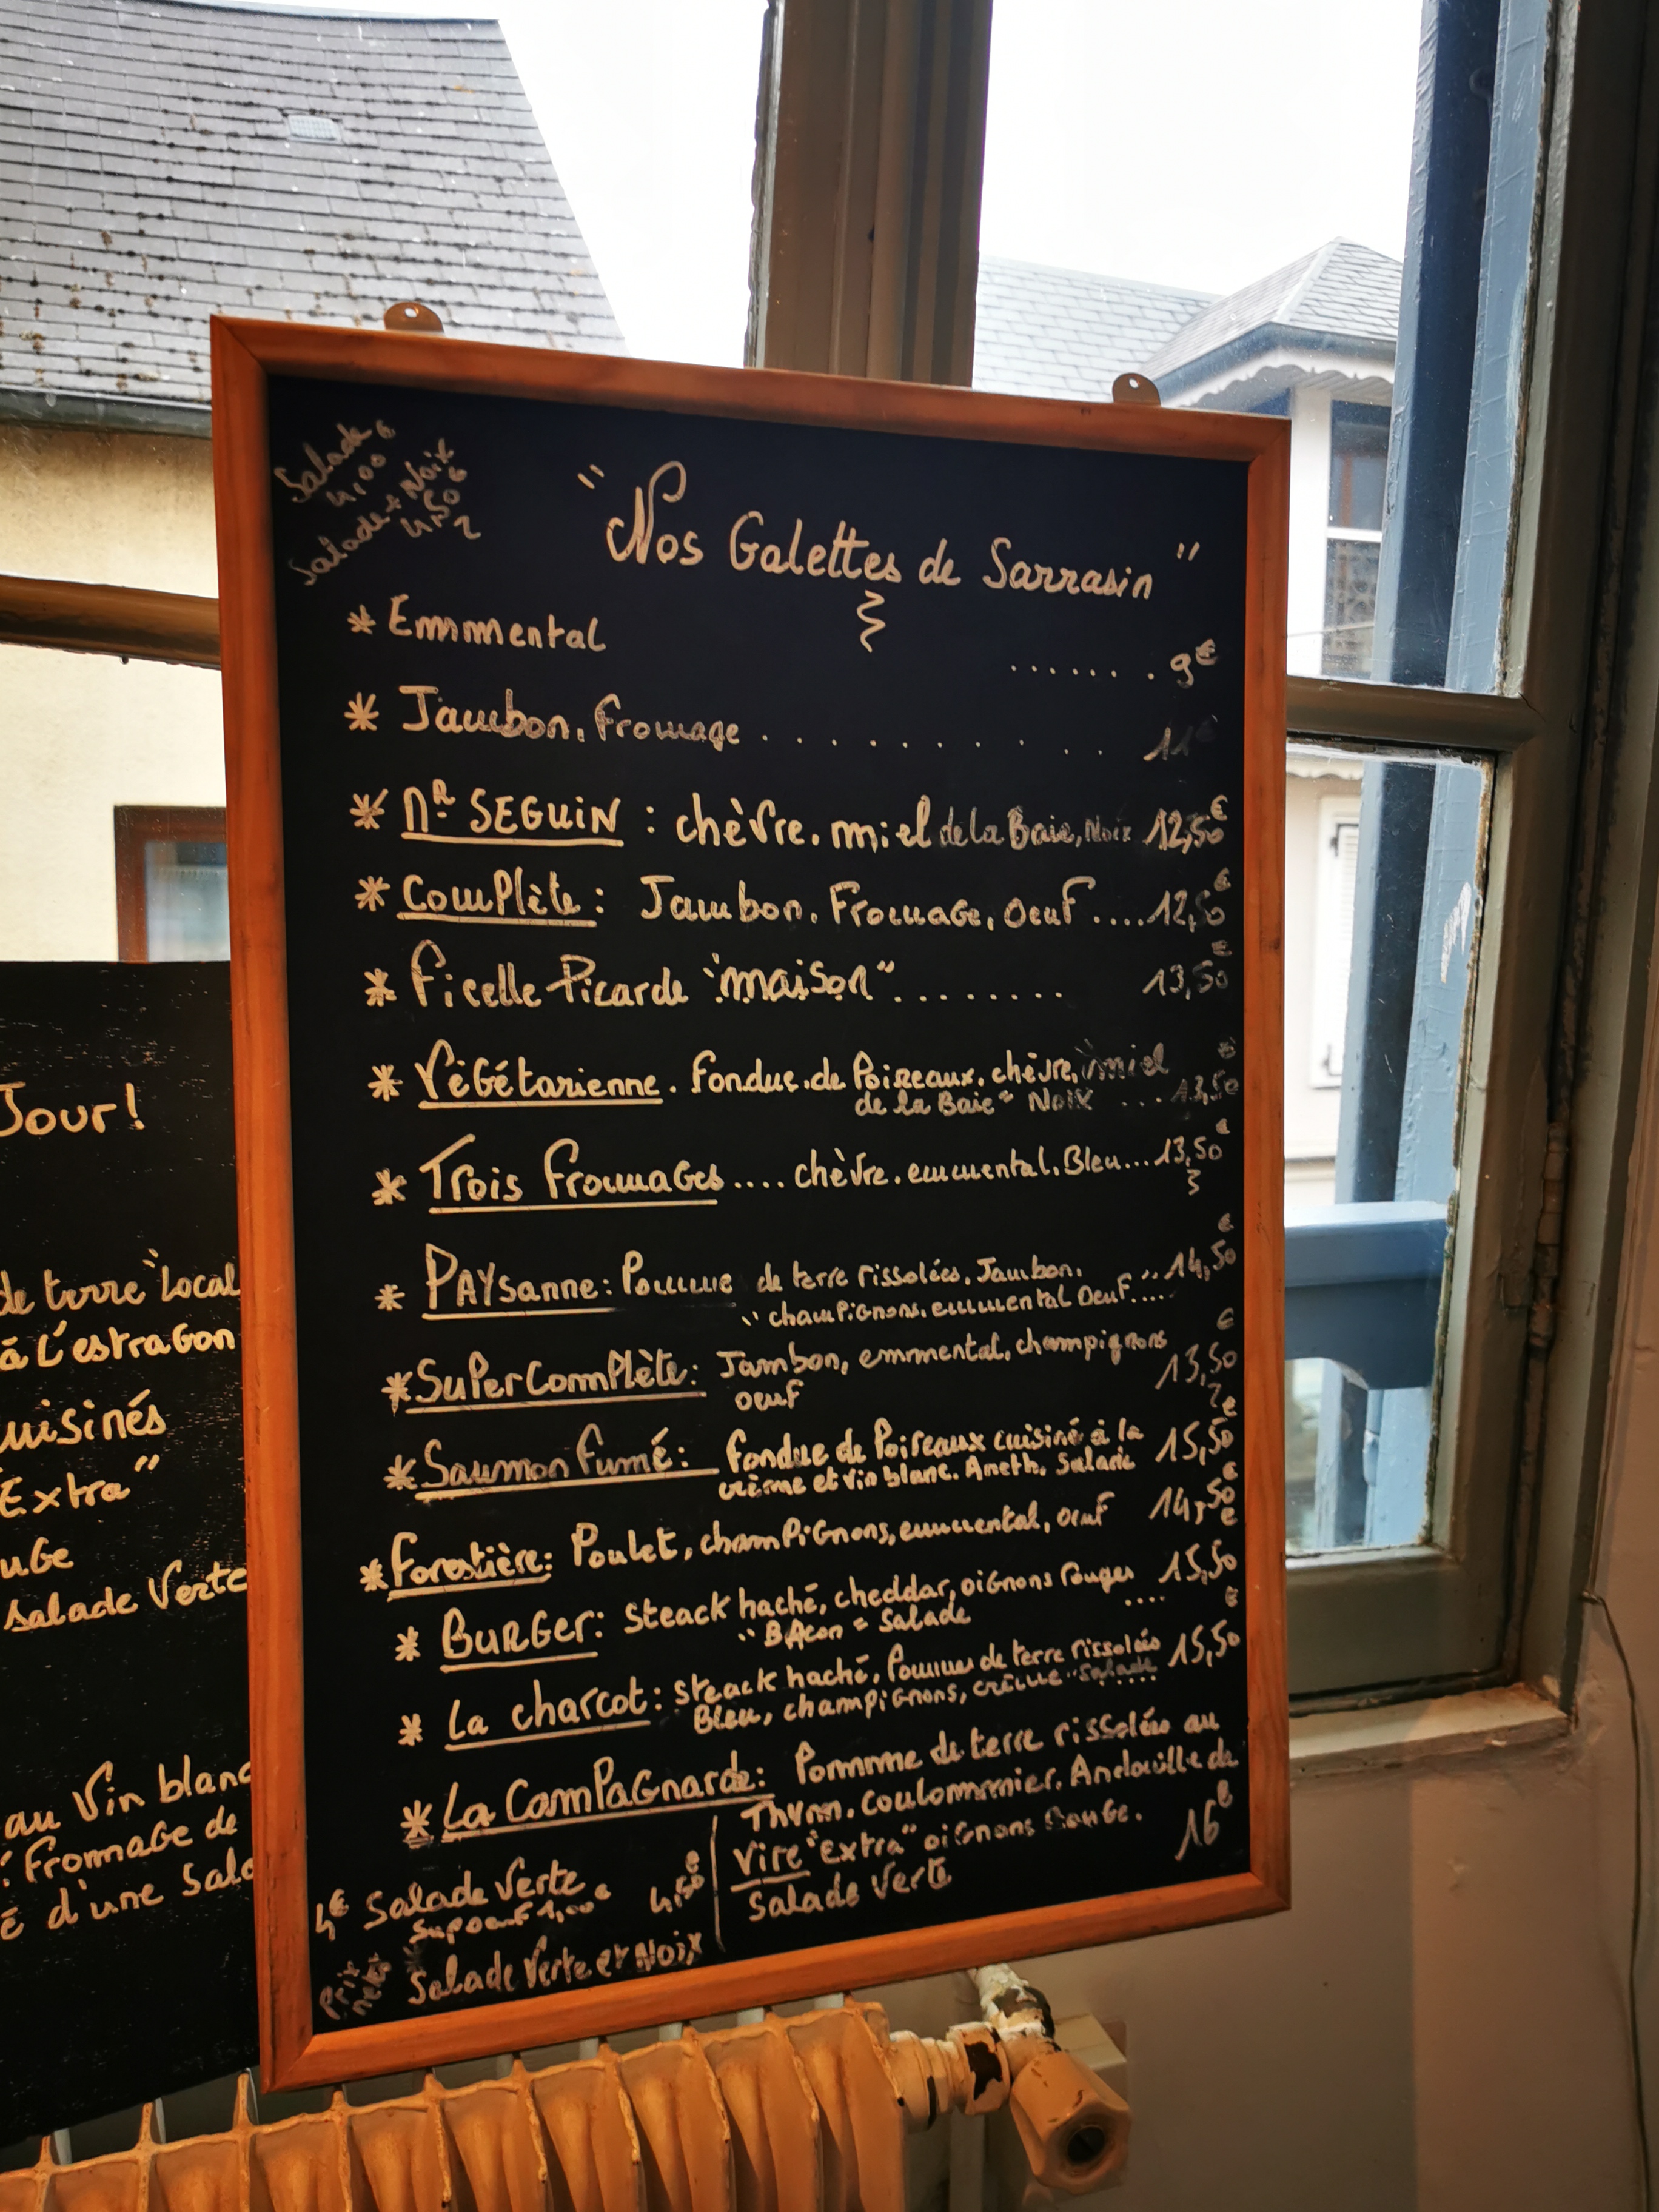 Salade €
4,00
Salade + Noix
4,50 €
"Nos Galettes de Sarrasin"
* Emmental ....... 9€
* Jambon, Fromage . . . . . . . . . 11€
* Mr SEGUIN : chèvre, miel de la Baie, Noix 12,50€
* Complète : Jambon, Fromage, Oeuf .... 12,50€
* Ficelle Picarde "maison" ........ 13,50€
* Végétarienne . Fondue de Poireaux, chèvre, "miel
de la Baie" Noix ... 13,50€
* Trois Fromages .... chèvre, emmental, Bleu... 13,50€
* PAYsanne : Pomme de terre rissolées, Jambon, .. 14,50€
champignons, emmental Oeuf....
* Super Complète : Jambon, emmental, champignons
oeuf 13,50€
* Saumon Fumé : Fondue de Poireaux cuisiné à la 15,50€
crème et vin blanc. Aneth, Salade
* Forestière : Poulet, champignons, emmental, oeuf 14,50€
* BURGER : Steack haché, cheddar, oignons Rouges 15,50€
BAcon = Salade ....
* La charcot : Steack haché, Pommes de terre rissolées 15,50€
Bleu, champignons, crème Salade
* La CamPaGnarde : Pomme de terre rissolées au
Thym, Coulommier, Andouille de
Vire "Extra" oignons Rouge. 16€
Salade Verte
4€ Salade Verte 4,50€
Sup oeuf 1,00€
Salade Verte et Noix
Prix
nets
Jour!
de terre "Local
à L'estragon
uisinés
Extra"
uGe
Salade Verte
au Vin blanc
: Fromage de
é d'une Sala